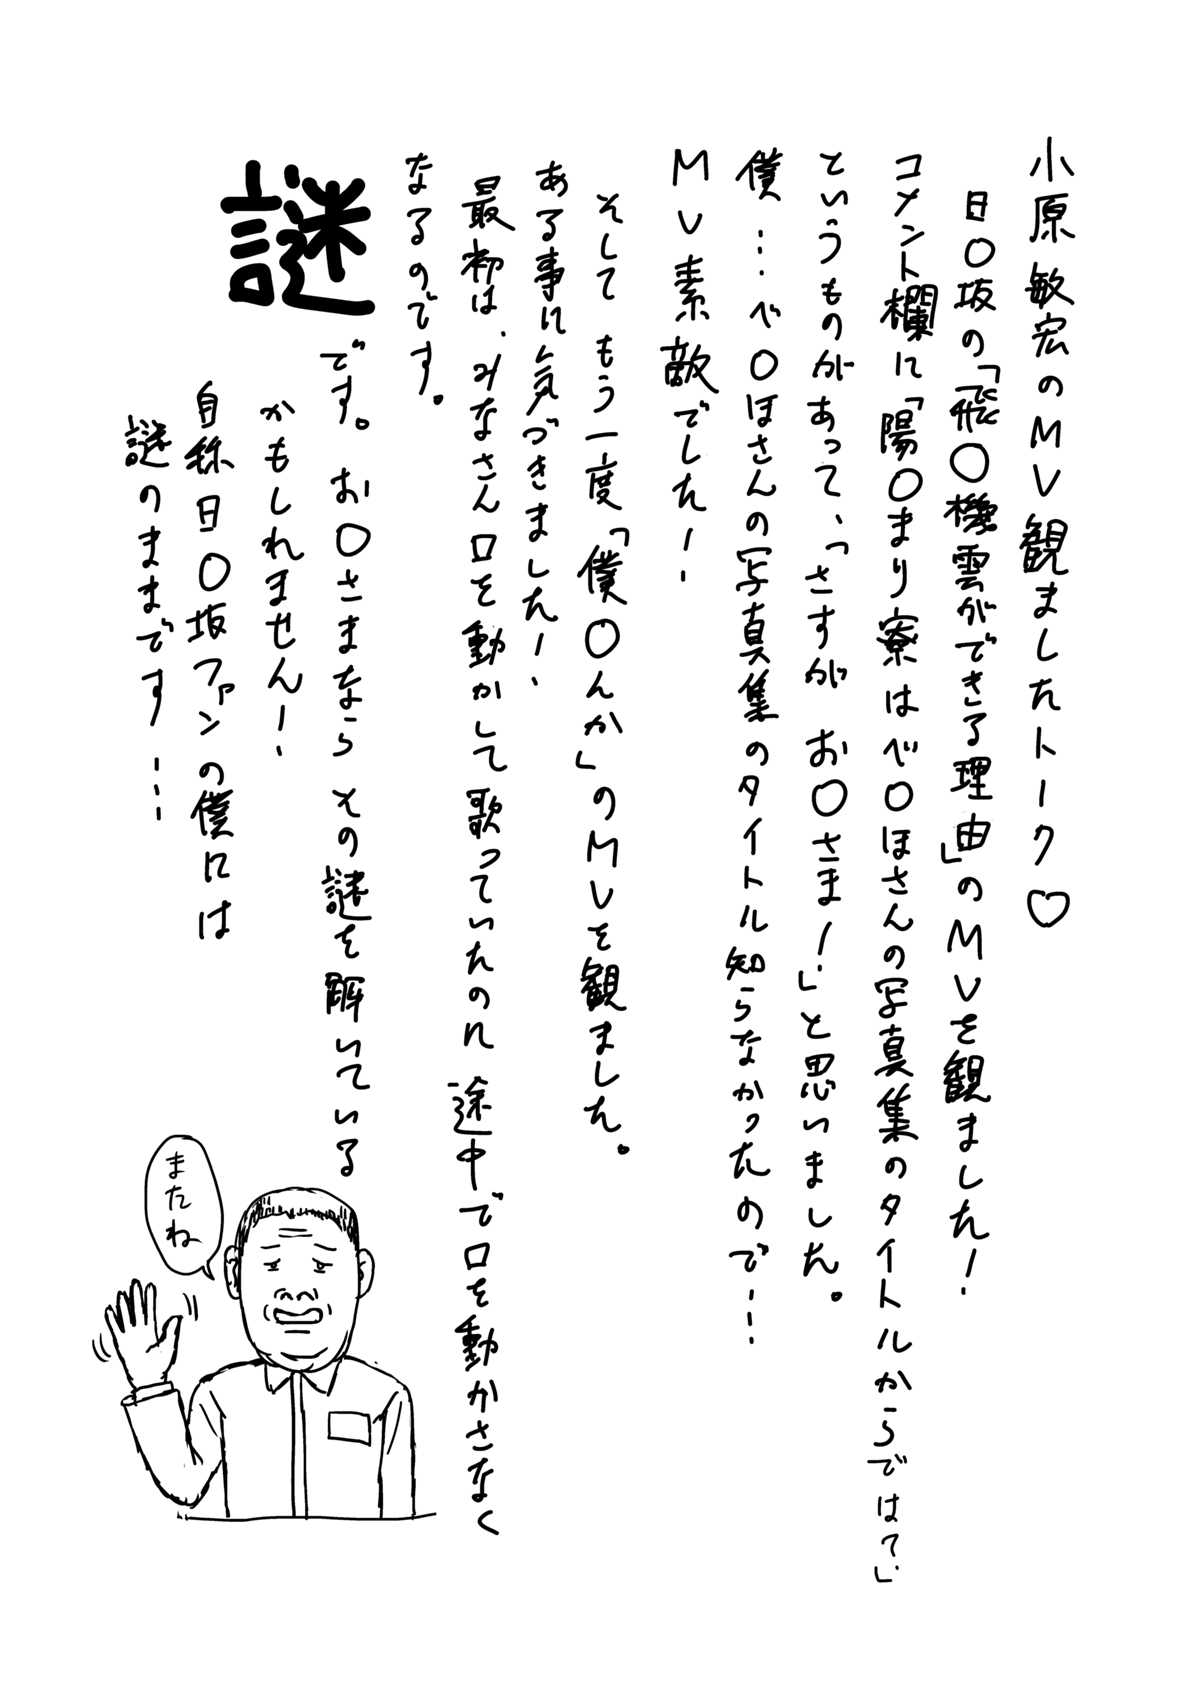 小原敏宏のMV観ましたトーク♡
日〇坂の「飛〇機雲ができる理由」のMVを観ました！
コメント欄に「陽〇まり寮はベ〇ほさんの写真集のタイトルからでは？」
というものがあって、「さすが お〇さま！」と思いました。
僕…ベ〇ほさんの写真集のタイトル知らなかったので…
MV素敵でした！
そして もう一度「僕〇んか」のMVを観ました。
ある事に気づきました！
最初は、みなさん口を動かして歌っていたのに 途中で口を動かさなく
なるのです。
謎です。お〇さまなら その謎を解いている
かもしれません！
自称日〇坂ファンの僕には
謎のままです…
またね